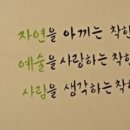 자연을 아끼는 착한
예술을 사랑하는 착한
사람을 생각하는 착한